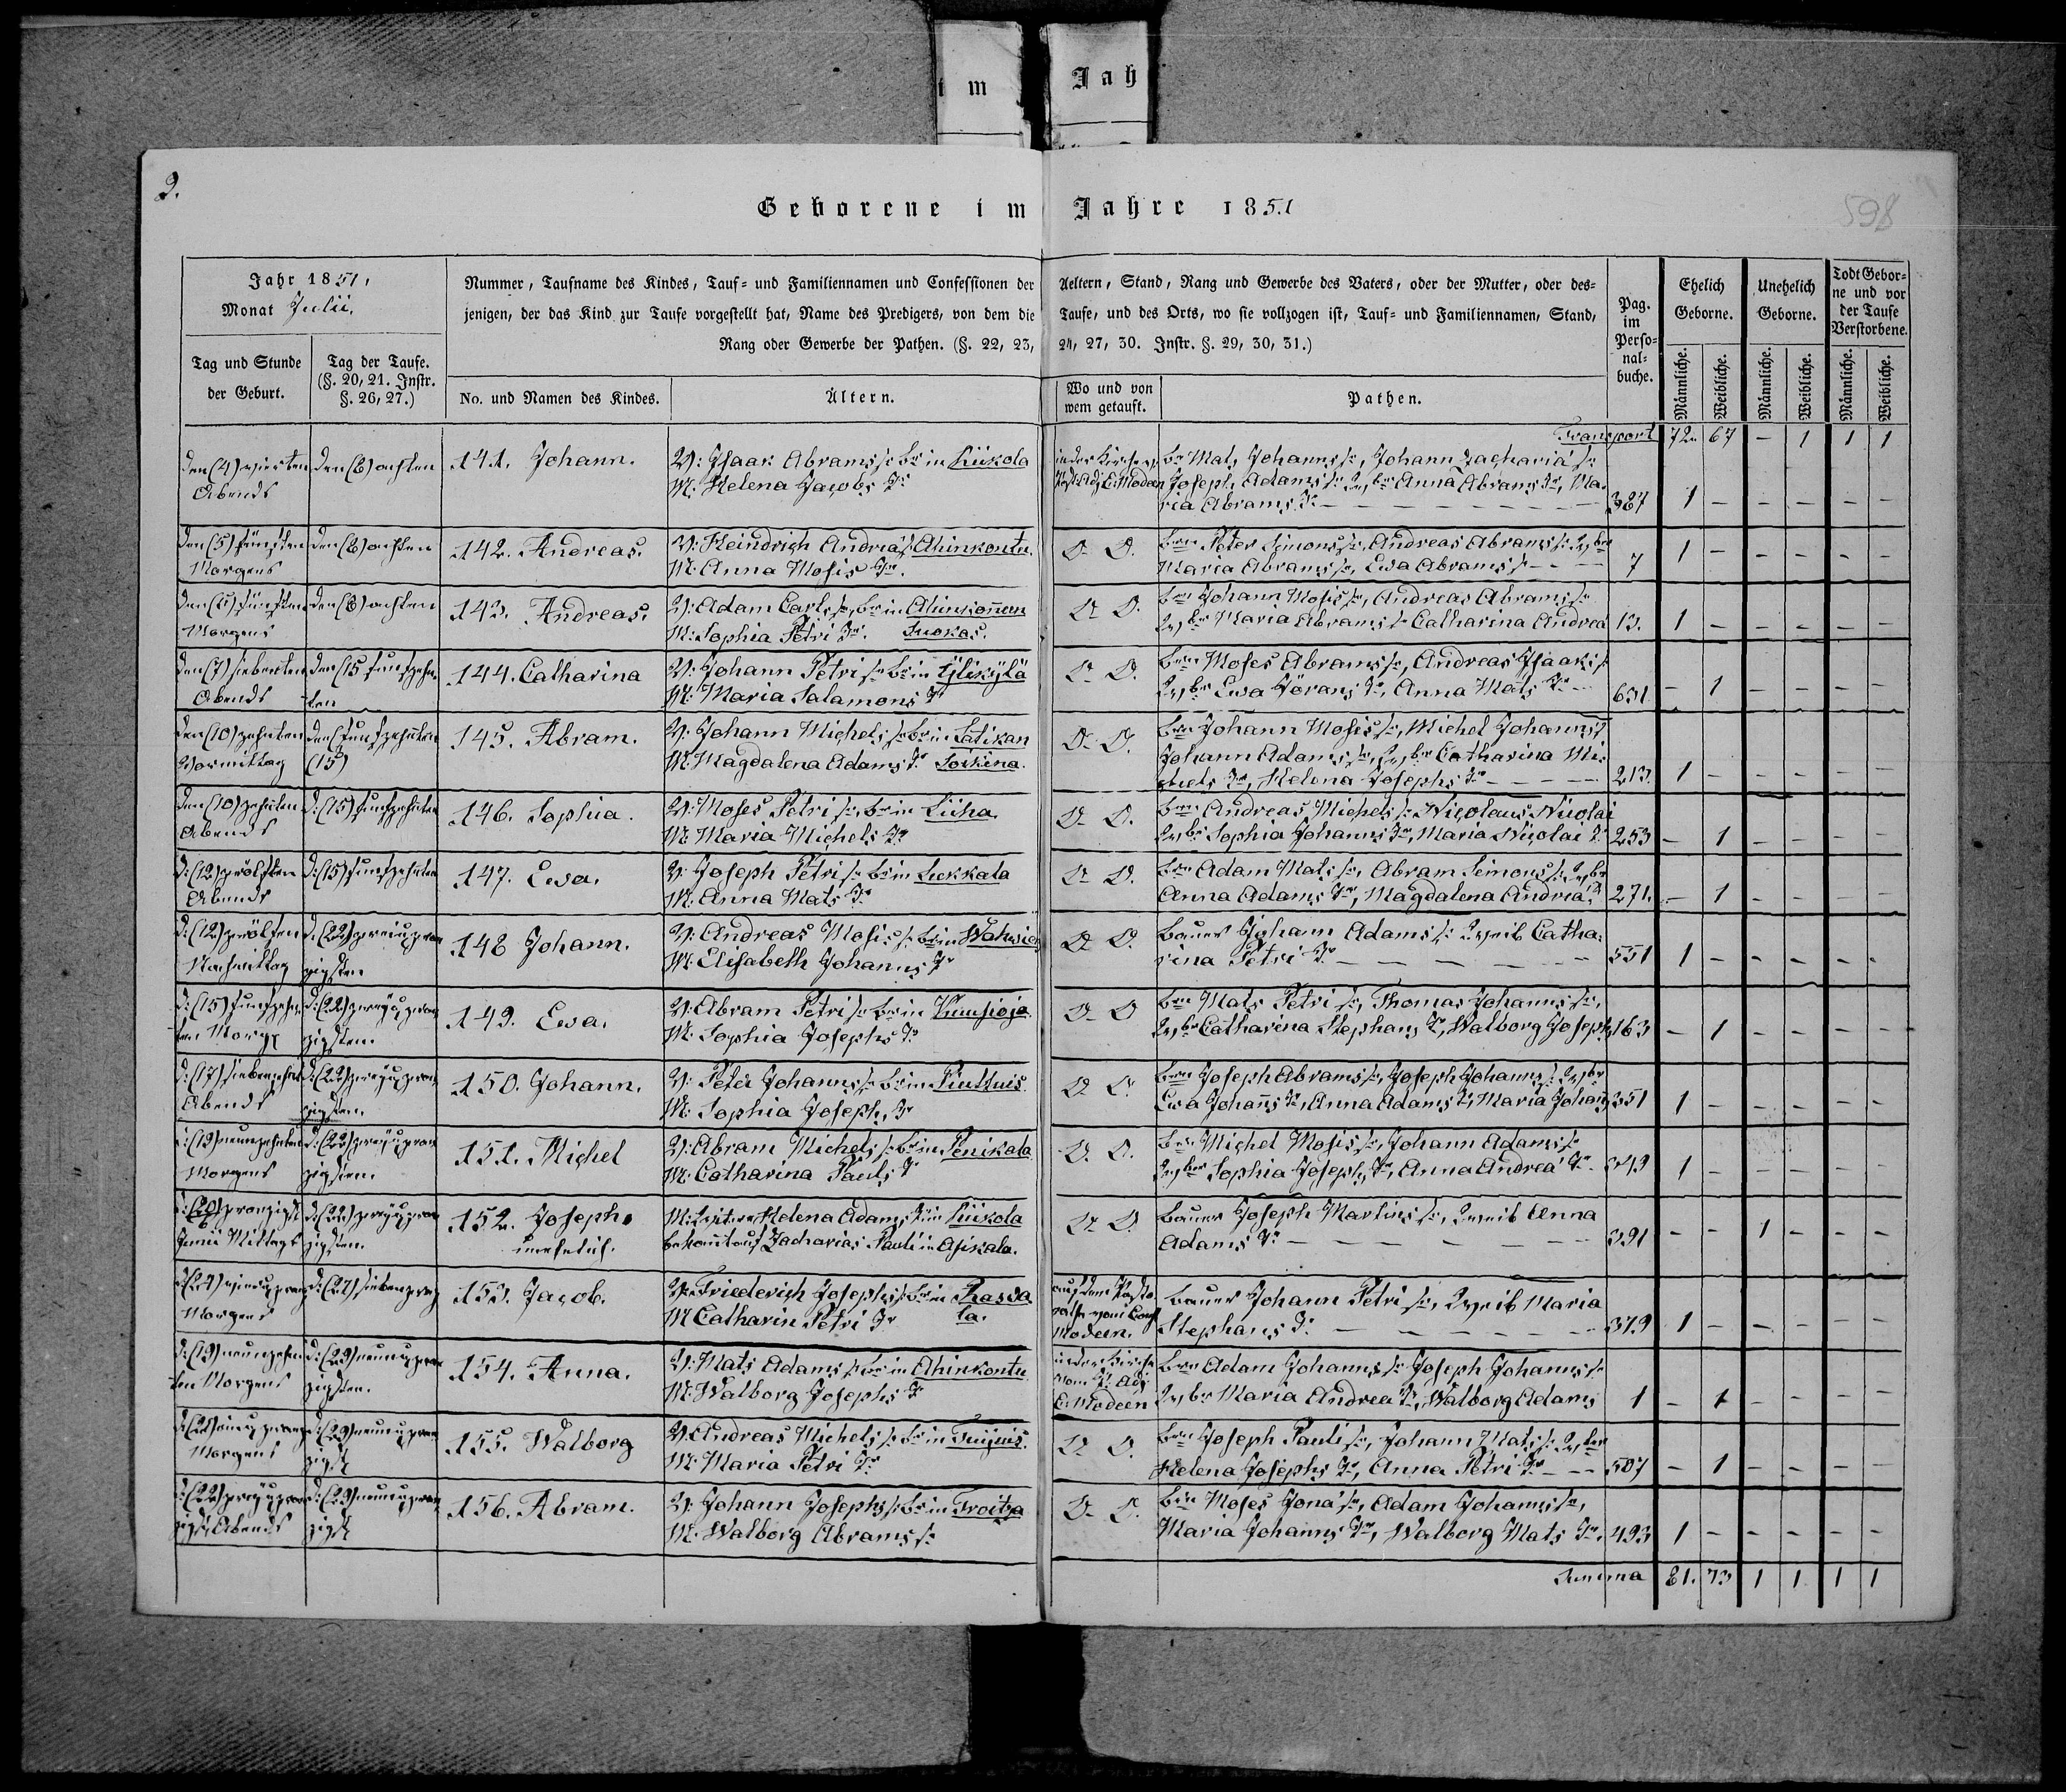 im Jah
Geborene im Jahre 1851
598
Jahr 1851,
Monat Julii.
Nummer, Taufname des Kindes, Tauf- und Familiennamen und Confessionen der Aeltern, Stand, Rang und Gewerbe des Vaters, oder der Mutter, oder des-
jenigen, der das Kind zur Taufe vorgestellt hat, Name des Predigers, von dem die Taufe, und des Orts, wo sie vollzogen ist, Tauf- und Familiennamen, Stand,
Rang oder Gewerbe der Pathen. (§. 22, 23, 24, 27, 30. Instr. §. 29, 30, 31.)
Tag und Stunde
der Geburt.
Tag der Taufe.
(§. 20, 21. Instr.
§. 26, 27.)
No. und Namen des Kindes.
Ältern.
Wo und von
wem getauft.
Pathen.
Pag.
im
Perso-
nal-
buche.
Ehelich
Geborne.
Unehelich
Geborne.
Todt Gebor-
ne und vor
der Taufe
Verstorbene.
Männliche.
Weibliche.
Männliche.
Weibliche.
Männliche.
Weibliche.
Transport 72. 67 - 1 1 1
den (4) vierten
Abends
den (8) achten
141. Johann.
V: Isaak Abrams in Liikola
M: Helena Jacobs
in der Kirche
Adj. E. Modeen
Mats Johanns, Johann Zachariä
Joseph Adams Anna Abrams, Ma-
ria Abrams
387 1 - - - - -
den (5) fünften
Morgens
den (8) achten
142. Andreas.
V: Heindrich Andreä Ahinkontu.
M: Anna Mosis
D. D.
Peter Simons, Andreas Abrams
Maria Abrams, Ewa Abrams
7 1 - - - - -
den (5) fünften
Morgens
den (8) achten
143. Andreas.
V: Adam Carls in Ahinkoñen
M: Sophia Petri Suokas.
D. D.
Johann Mosis, Andreas Abrams
Maria Abrams Catharina Andrea
13. 1 - - - - -
den (7) siebenten
Abends
den (15 funfzehn-
ten
144. Catharina
V: Johann Petri in Ylikylä
M: Maria Salamons
D. D.
Moses Abrams, Andreas Isaaks
Ewa Görans, Anna Mats
631 - 1 - - - -
den (10) zehnten
Vormittag
den funfzehnten
(15)
145. Abram.
V: Johann Michels in Latikan
M: Magdalena Adams Soikina.
D. D.
Johann Mosis, Michel Johanns
Johann Adams, Catharina Mi-
chels, Helena Josephs
213. 1 - - - - -
den (10) zehnten
Abends
d: (15) funfzehnten
146. Sophia.
V: Moses Petri in Liiha.
M: Maria Michels
D. D.
Andreas Michels Nicolaus Nicolai
Sophia Johanns, Maria Nicolai
253 - 1 - - - -
d: (12) zwölften
Abends
d: (15) funfzehnten
147. Ewa.
V: Joseph Petri in Lukkala
M: Anna Mats
D. D.
Adam Mats, Abram Simons
Anna Adams, Magdalena Andriä
271. - 1 - - - -
d: (12) zwölfen
Nachmittag
d: (22) zweiuzwan
zigsten
148 Johann.
V: Andreas Mosis in
M: Elisabeth Johanns
D. D.
Bauer Johann Adams Weib Catha-
rina Petri
551 1 - - - - -
d: (15) funfzehn-
ten
d: (22) zweyuzwan
zigsten.
149. Ewa.
V: Abram Petri in Kuusioja
M: Sophia Josephs
D. D
Mats Petri, Thomas Johanns,
Catharina Stephans, Walborg Josephs
163 - 1 - - - -
d: (17) siebenzehnt
Abends
d: (22) zweyuzwan
zigsten.
150. Johann.
V: Peter Johanns in
M: Sophia Josephs
D. D.
Joseph Abrams, Joseph Johanns
Ewa Johañs, Anna Adams, Maria Johans
351 1 - - - - -
d: (19) neunzehnten
Morgens
d: (22) zweyuzwan
zigsten.
151. Michel
V: Abram Michels in Penikala
M: Catharina Pauls
D. D.
Michel Mosis, Johann Adams
Sophia Josephs, Anna Andreä
349 1 - - - - -
d: (20) zwanzigst
Junii Mittags
d: (22) zweyuzwan
zigsten.
152. Joseph.
unehelich.
M: Helena Adams in Liikola
bekannt auf Zacharias Pauli in Asikala.
D. D.
Bauer Joseph Martins, Weib Anna
Adams
391 - - 1 - - -
d: (24) vieruzwanz
Morgens
d: (27) siebenzwanz
153. Jacob.
V: Friederich Josephs in Rasva
M Catharin Petri la.
auf dem Pasto
rathe vom
Modeen.
Bauer Johann Petri, Weib Maria
Stephans
379 1 - - - - -
d: (19) neunzehn
ten Morgens
d: (29) neunuzwan
zigsten.
154. Anna.
V: Mats Adams in Ahinkontu
M: Walborg Josephs
in der Kirche
vom Adj
E. Modeen
Adam Johanns Joseph Johanns
Maria Andrea, Walborg Adams
1 - 1 - - - -
d: (21) einuzwanz
Morgens
d: (29) neunuzwan
zigst
155. Walborg
V: Andreas Michels in
M: Maria Petri
D. D.
Joseph Pauli, Johann Mats
Helena Josephs, Anna Petri
507 - 1 - - - -
d: (22) zweyuzwan
zigst Abends
d: (29) neunuzwan
zigst
156. Abram.
V: Johann Josephs in Troitza
M: Walborg Abrams
D. D.
Moses Jonä, Adam Johanns,
Maria Johanns, Walborg Mats
493 1 - - - - -
Summa 81. 73 1 1 1 1